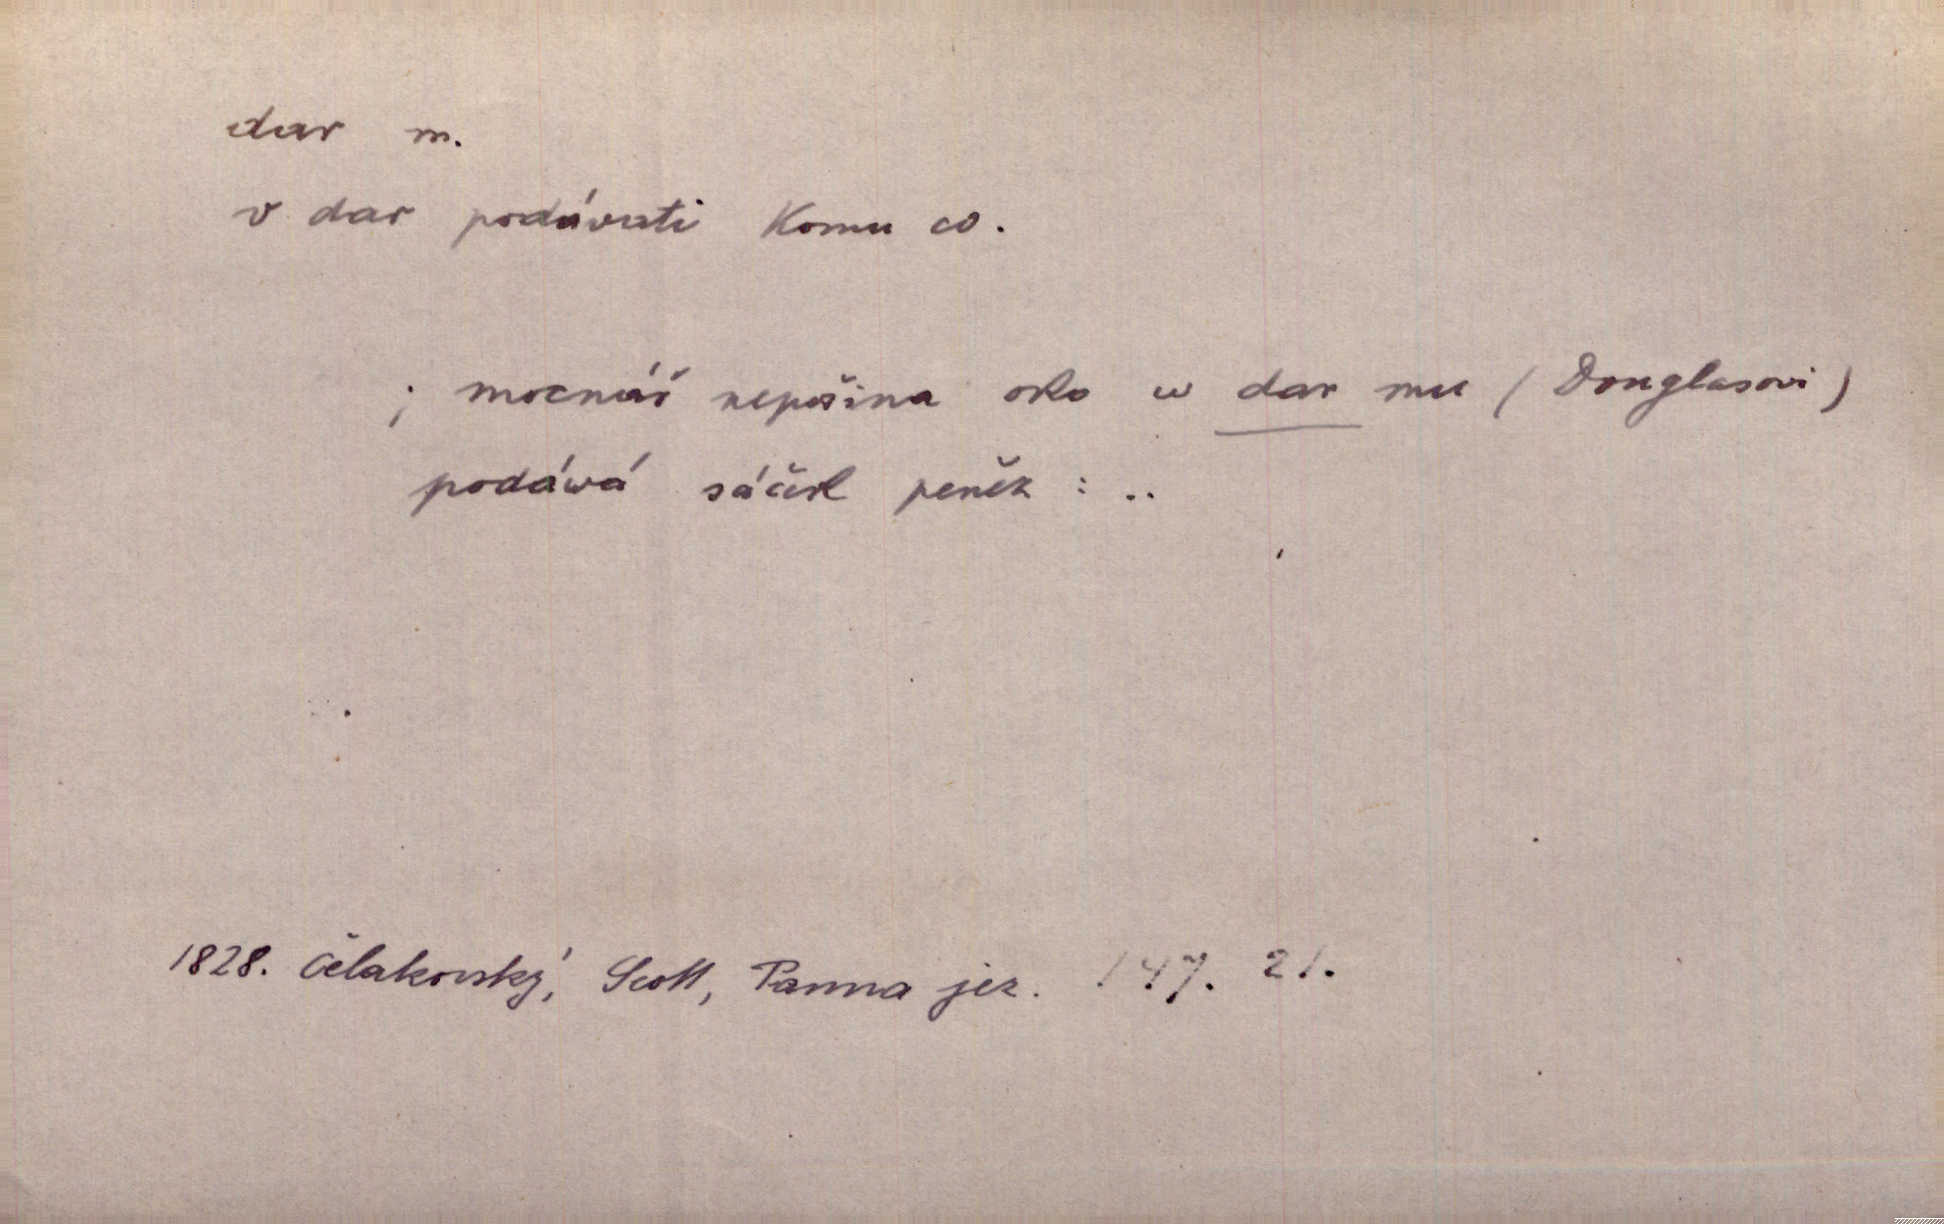 dar m.
v dar podávati komu co.
; mocnář oko w dar mu (Douglasovi)
podáwá sáček peněz : ..
1828. Čelakovský, Scott, Panna jez. 147. 21.